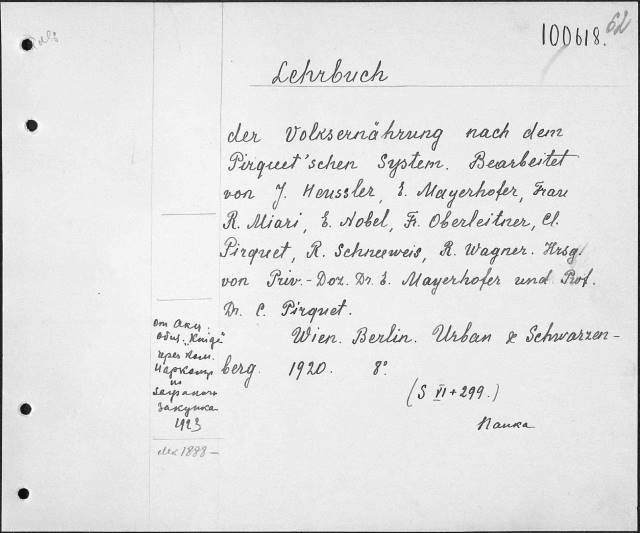 62
100618.
Lehrbuch
der Volksernährung nach dem
Pirquet'schen System. Bearbeitet
von J. Heussler, E. Mayerhofer, Frau
R. Miari, E. Nobel, Fr. Oberleitner, Cl.
Pirquet, R. Schneeweis, R. Wagner. Hrsg.
von Priv.-Doz. Dr. E. Mayerhofer und Prof.
Dr. C. Pirquet.
Wien. Berlin. Urban & Schwarzen-
berg. 1920. 8°.
(S VI + 299.)
Папка
от Акц.
Общ. "Книга"
через Ком.
Наркомпр
по
Заграничн
закупка
1923